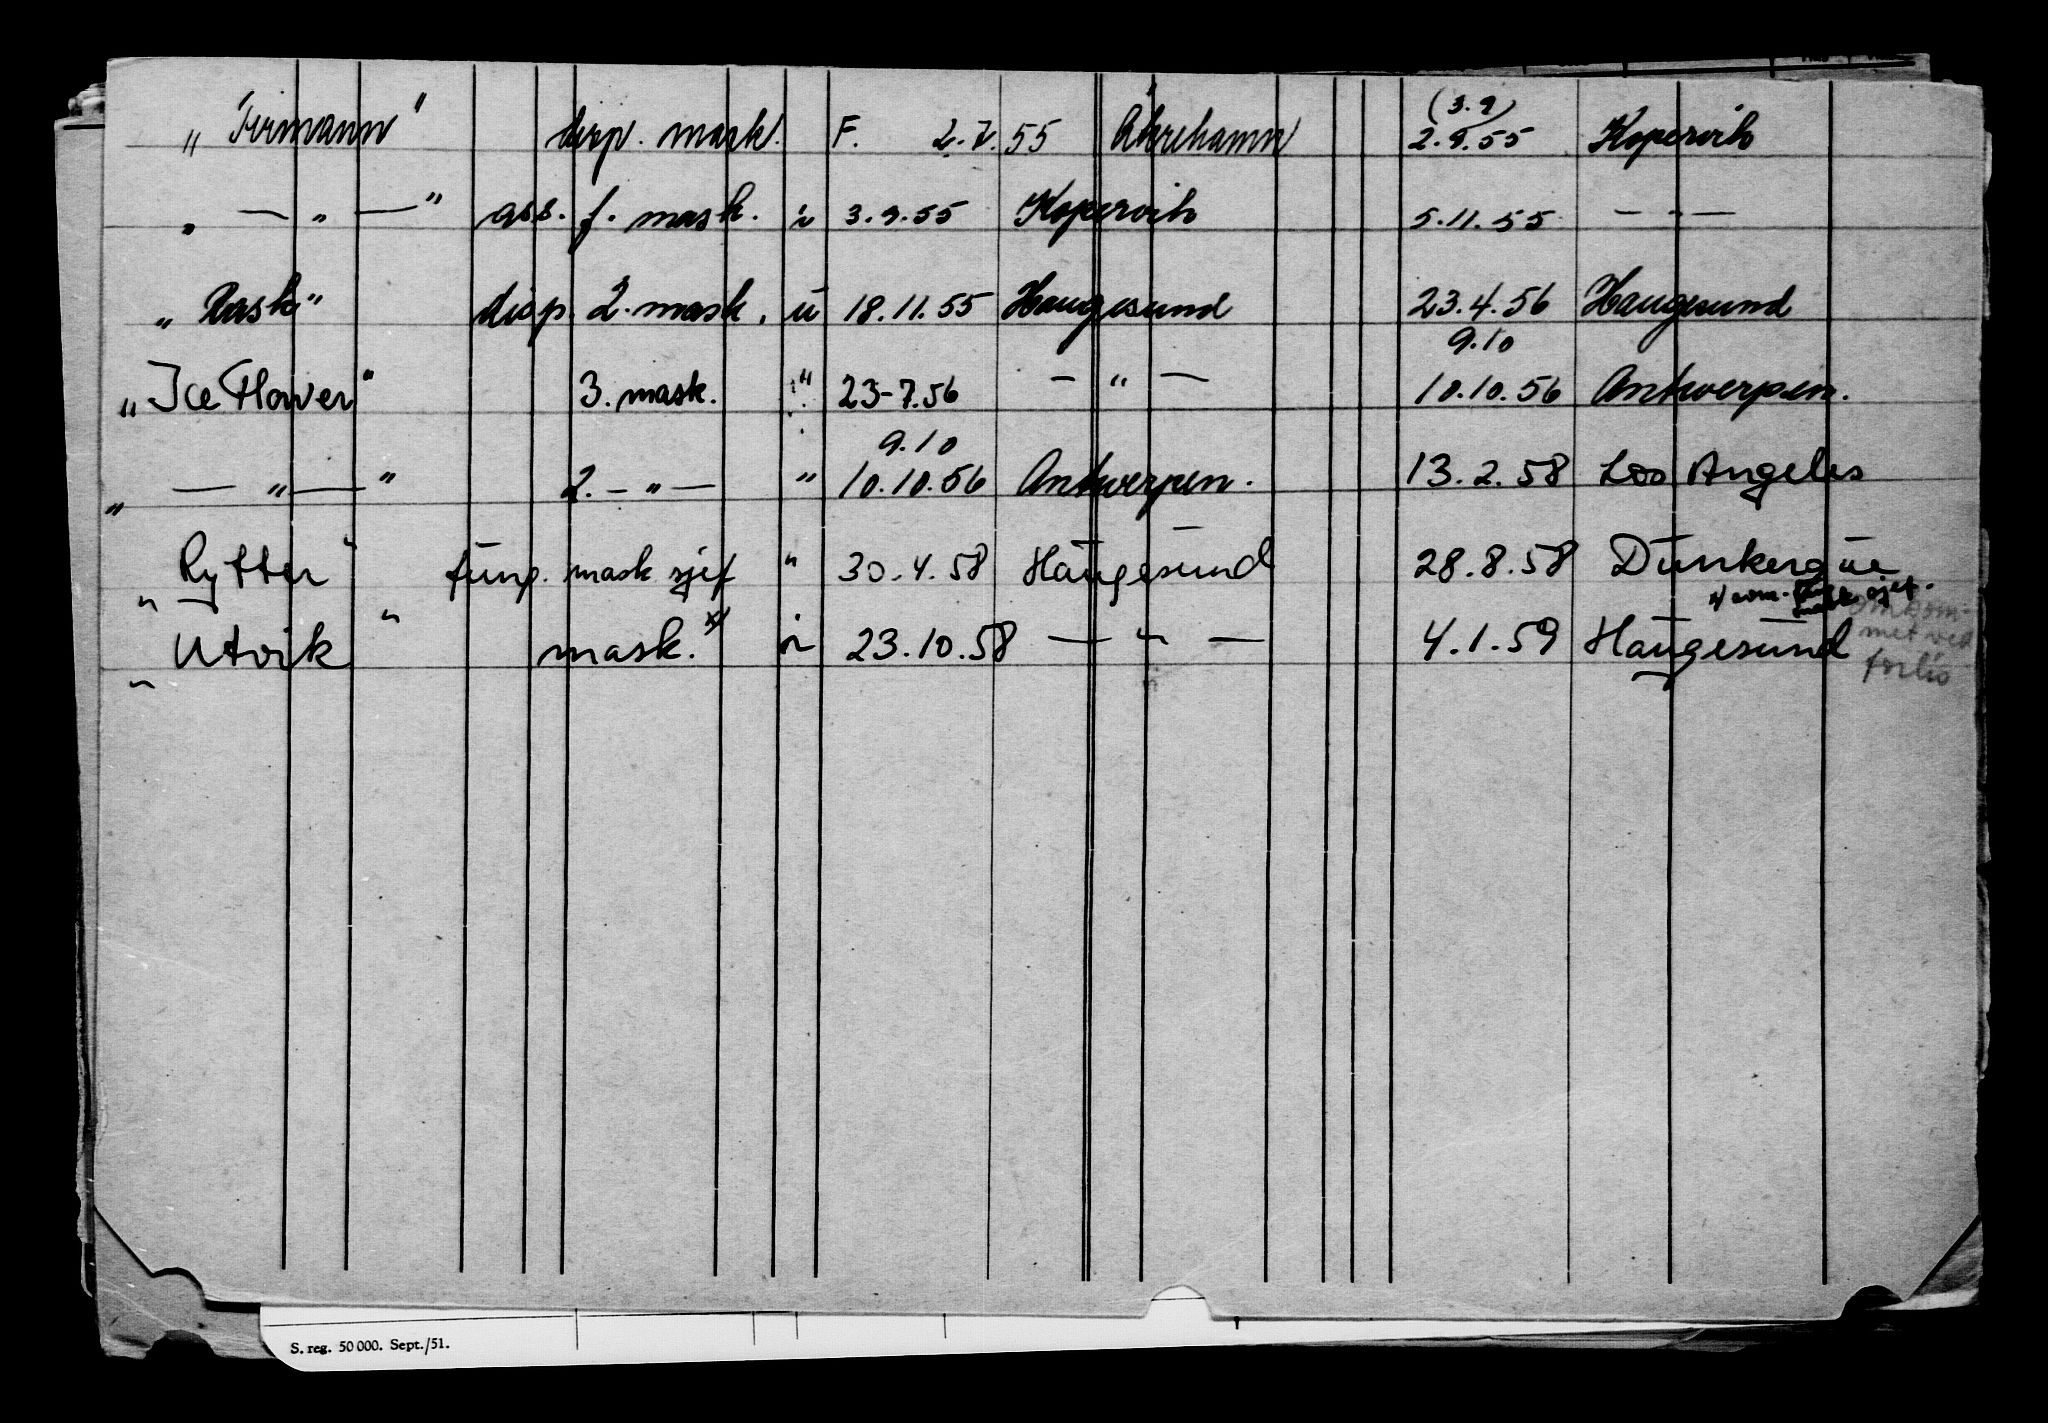 (3.9)
„Firmann" disp. mask. F. 2.7.55 Åkrehamn 2.9.55 Kopervik
„ — „ — " ass. f. mask. i 3.9.55 Kopervik 5.11.55 — " —
„Rask" disp. 2. mask. u 18.11.55 Haugesund 23.4.56 Haugesund
9.10
„Ice Flower" 3. mask. " 23-7.56 — " — 10.10.56 Antwerpen.
9.10
„ — " — " 2. — " — " 10.10.56 Antwerpen. 13.2.58 Los Angeles
„Rytter" fung. mask sjef " 30.4.58 Haugesund 28.8.58 Dunkerque
x) som mask. sjef.
„Utvik" mask. x) i 23.10.58 — " — 4.1.59 Haugesund
omkom-
met ved
forlis
S. reg. 50 000. Sept./51.